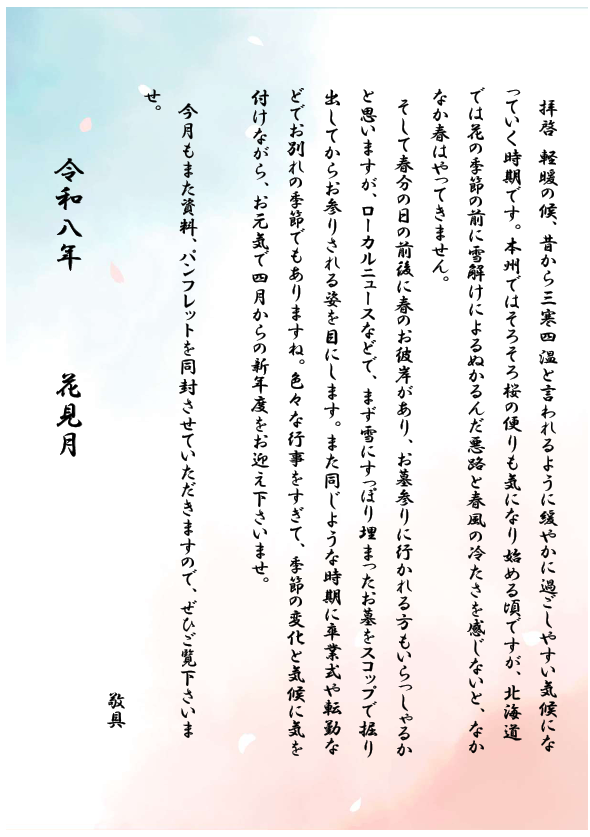 拝啓 軽暖の候、昔から三寒四温と言われるように緩やかに過ごしやすい気候にな
っていく時期です。本州ではそろそろ桜の便りも気になり始める頃ですが、北海道
では花の季節の前に雪解けによるぬかるんだ悪路と春風の冷たさを感じないと、なか
なか春はやってきません。
そして春分の日の前後に春のお彼岸があり、お墓参りに行かれる方もいらっしゃるか
と思いますが、ローカルニュースなどで、まず雪にすっぽり埋まったお墓をスコップで掘り
出してからお参りされる姿を目にします。また同じような時期に卒業式や転勤な
どでお別れの季節でもありますね。色々な行事をすぎて、季節の変化と気候に気を
付けながら、お元気で四月からの新年度をお迎え下さいませ。
今月もまた資料、パンフレットを同封させていただきますので、ぜひご覧下さいま
せ。
敬具
令和八年 花見月